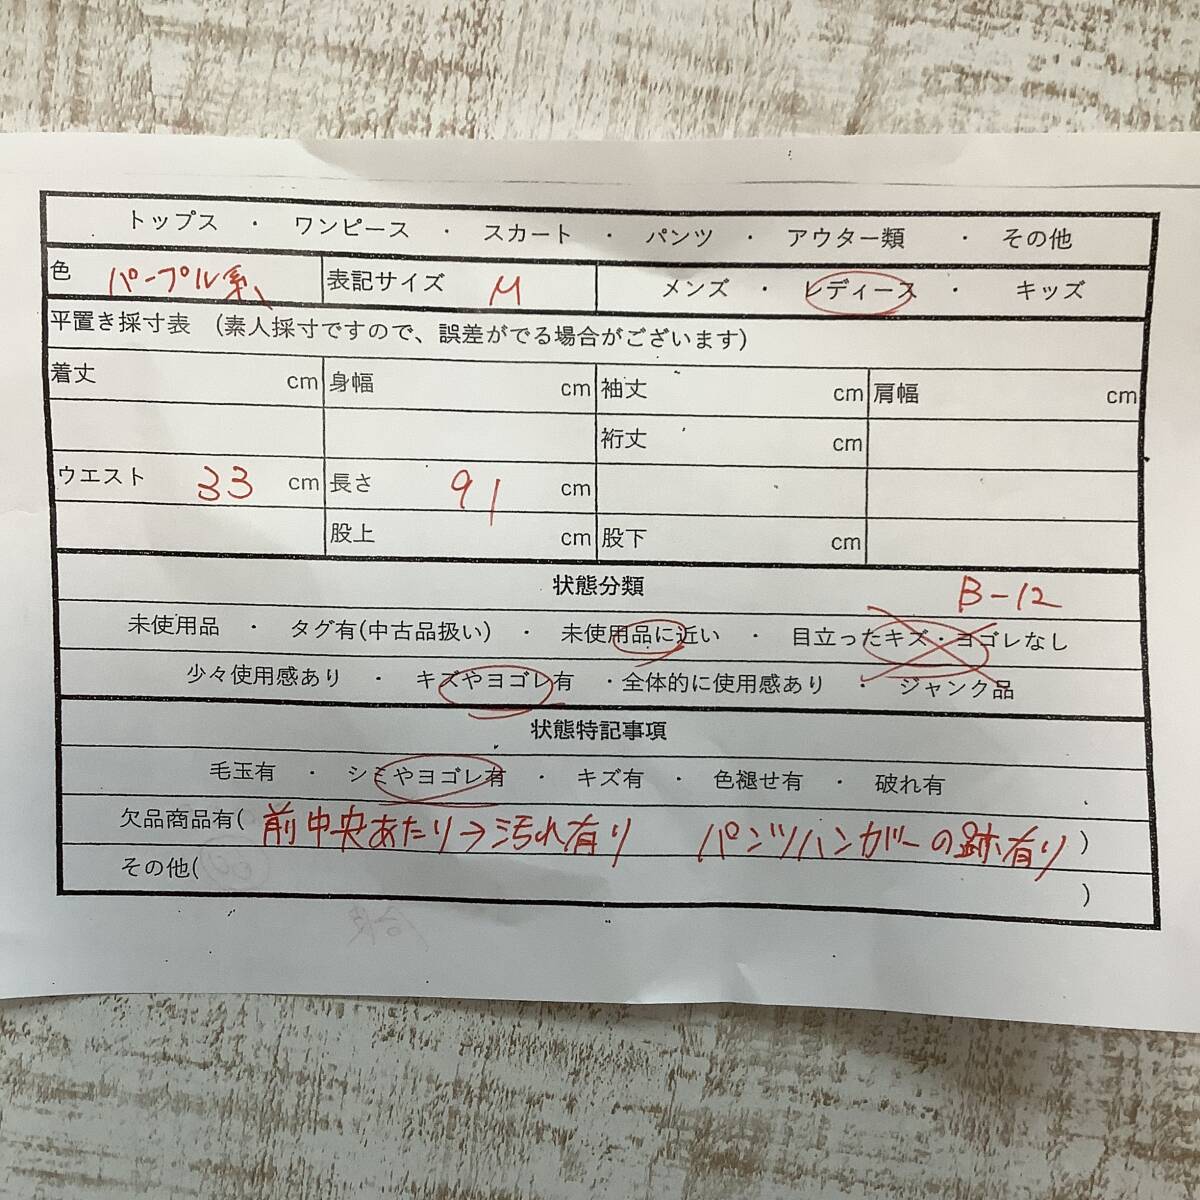 トップス ・ ワンピース ・ スカート ・ パンツ ・ アウター類 ・ その他
色 パープル系 表記サイズ M メンズ ・ レディース ・ キッズ
平置き採寸表 (素人採寸ですので、誤差がでる場合がございます)
着丈 cm 身幅 cm 袖丈 cm 肩幅 cm
裄丈 cm
ウエスト 33 cm 長さ 91 cm
股上 cm 股下 cm
状態分類 B-12
未使用品 ・ タグ有(中古品扱い) ・ 未使用品に近い ・ 目立ったキズ・ヨゴレなし
少々使用感あり ・ キズやヨゴレ有 ・全体的に使用感あり ・ ジャンク品
状態特記事項
毛玉有 ・ シミやヨゴレ有 ・ キズ有 ・ 色褪せ有 ・ 破れ有
欠品商品有( 前中央あたり→汚れ有り パンツハンガーの跡有り )
その他( )